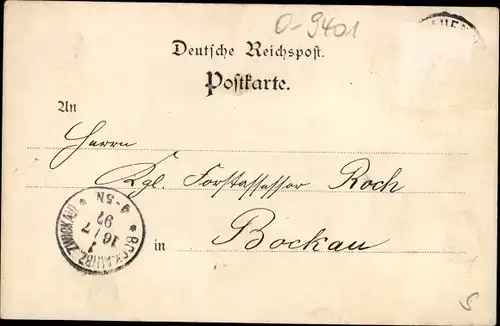 0-9401
Deutsche Reichspost.
Postkarte.
An
Herrn
Kgl. Forstassessor Roch
in Bockau
BOCKAU BZ. ZWICKAU
16/7
97
6-8N
S